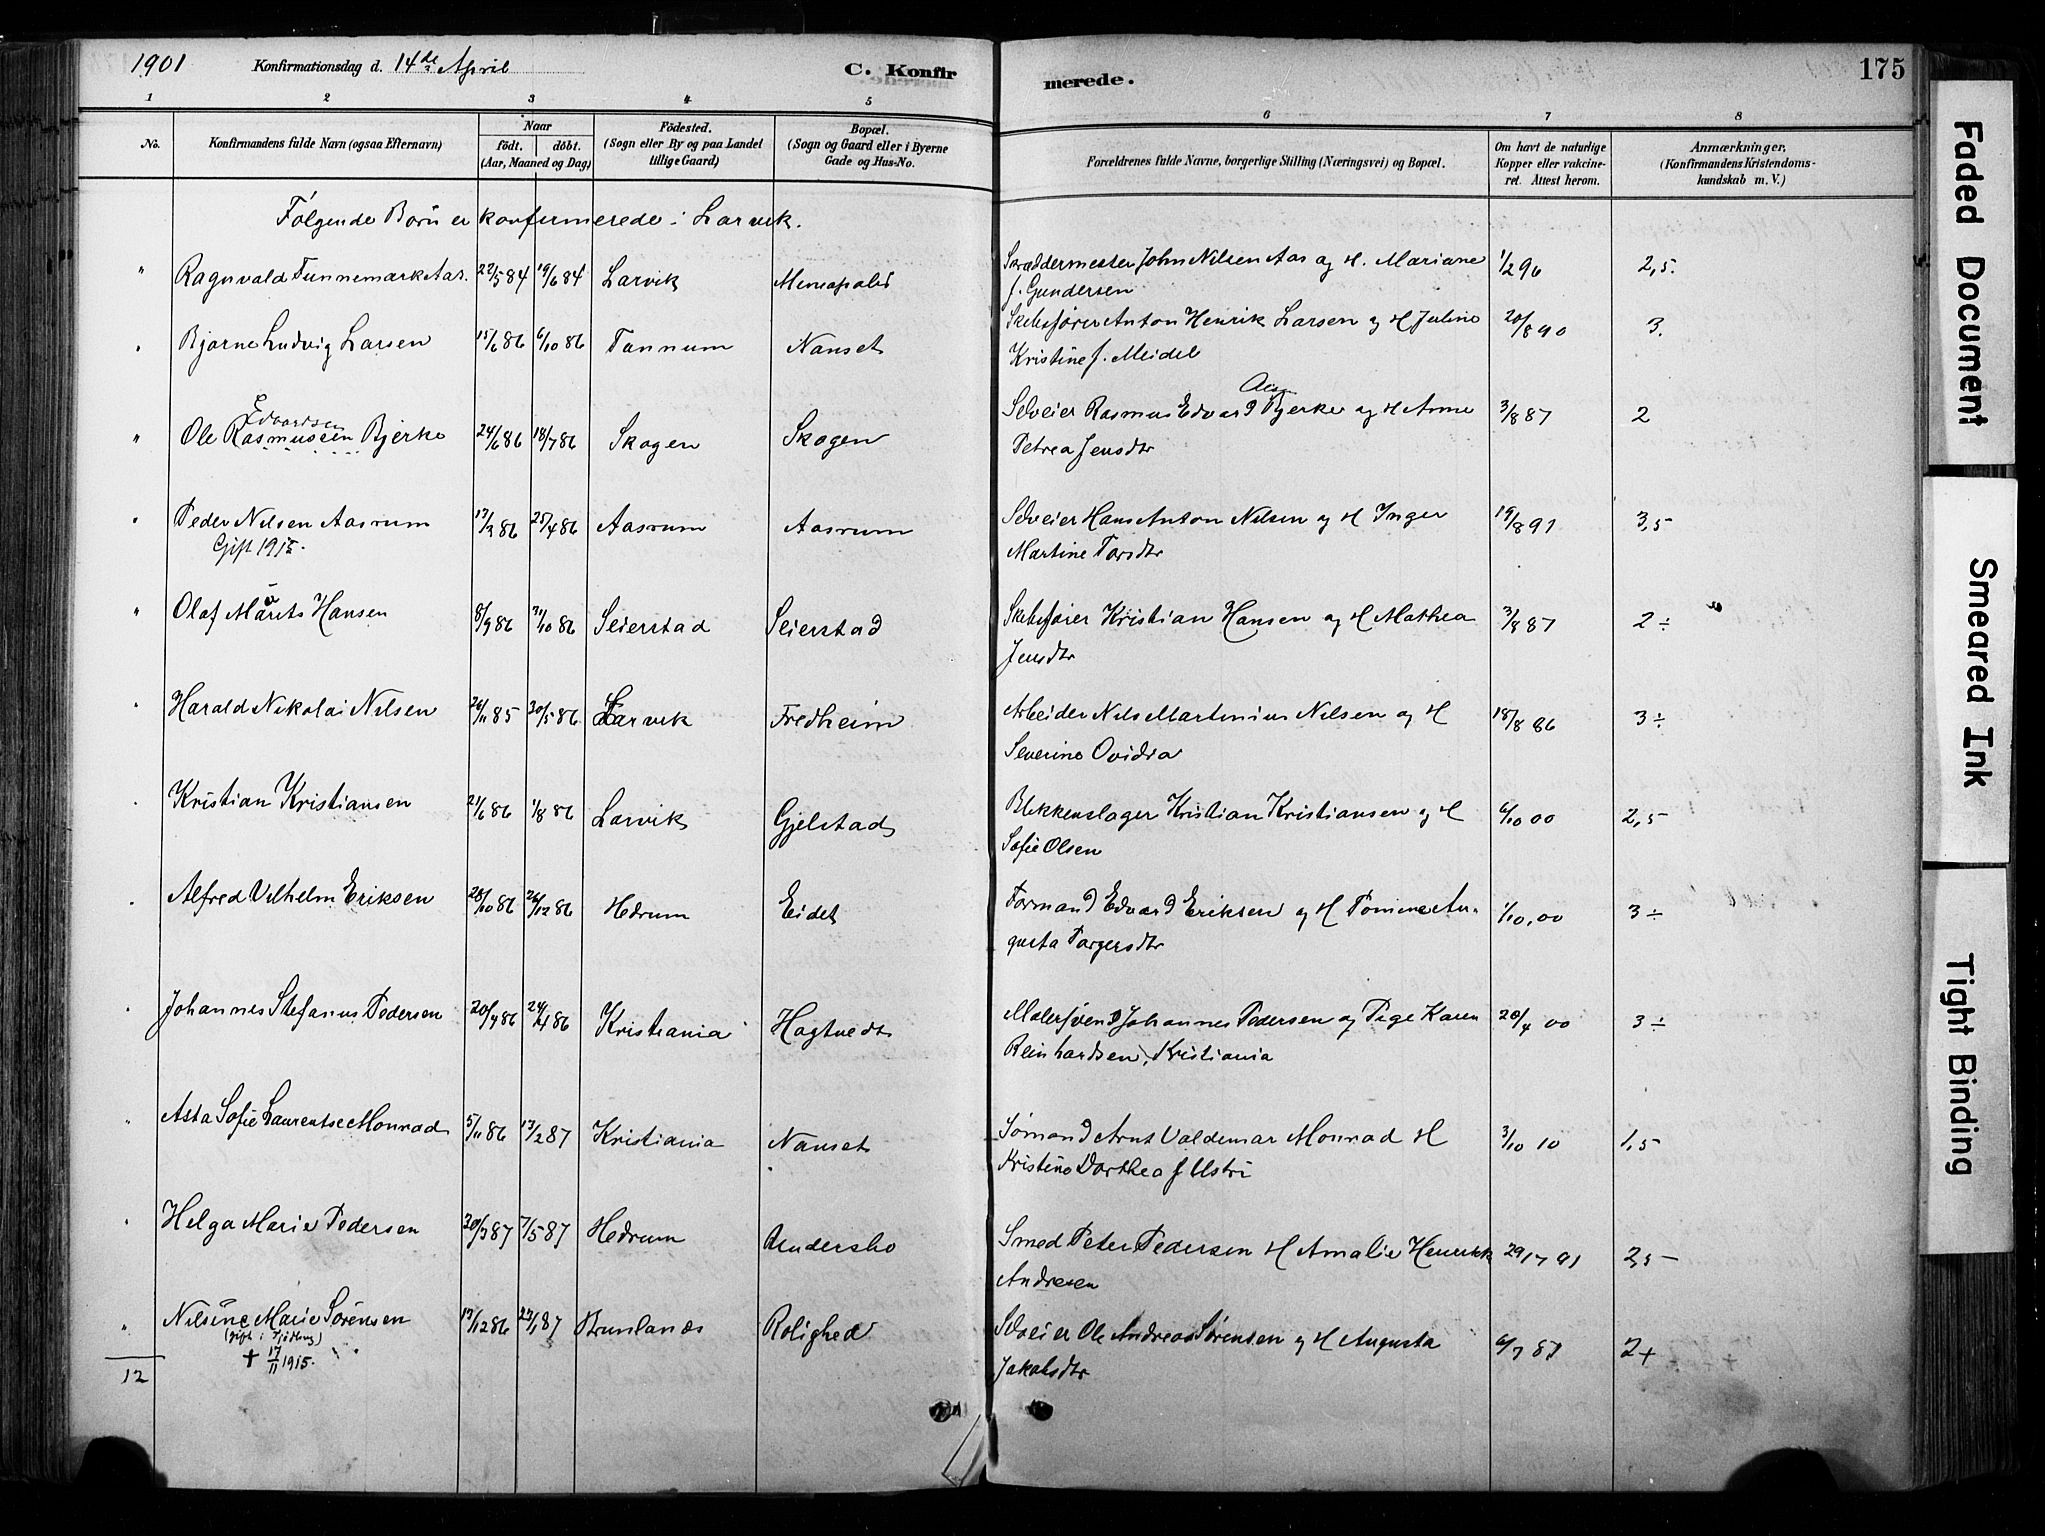 1901 Konfirmationsdag d. 14de April C. Konfirmerede. 175
1 2 3 4 5 6 7 8
No. Konfirmandens fulde Navn (ogsaa Efternavn) Naar födt. döbt. (Aar, Maaned og Dag) Födested. (Sogn eller By og paa Landet tillige Gaard) Bopæl. (Sogn og Gaard eller i Byerne Gade og Hus-No. Forældrenes fulde Navne, borgerlige Stilling (Næringsvei) og Bopæl. Om havt de naturlige Kopper eller vakcineret. Attest herom. Anmærkninger. (Konfirmandens Kristendomskundskab m. V.)
Følgende Børn er konfirmerede i Larvik.
" Ragnvald Tunnemark Aas. 22/5 84 19/6 84 Larvik Skræddermester John Nilsen Aas og H. Mariane 1/2 96 2,5.
f. Gundersen
" Bjarne Ludvig Larsen 15/6 86 6/10 86 Tannum Nanset Skibsfører Anton Henrik Larsen og H Juline 20/8 90 3.
Kristine f. Meidel
Edvardsen
" Ole Rasmussen Bjerke 24/6 86 18/7 86 Skogen Skogen Selveier Rasmus Edvard Bjerke og H Anne 3/8 87 2
Petrea Jensdtr
" Peder Nilsen Aasrum 25/4 86 Aasrum Aasrum Selveier Hans Anton Nilsen og H Inger 19/8 91 3,5
Gift 1915. Martine Torsdtr
" Olaf Marits Hansen 8/9 86 31/10 86 Seierstad Seierstad Skibsfører Kristian Hansen og H Mathea 3/8 87 2 ÷
Jensdtr
" Harald Nikolai Nilsen 26/11 85 30/5 86. Larvik Fredheim Arbeider Nils Martinius Nilsen og H 18/8 86 3 ÷
Severine Ovidia
" Kristian Kristiansen 21/6 86 1/8 86 Larvik Gjelstad Blikkenslager Kristian Kristiansen og H 6/10 00 2,5
Sofie Olsen
" Alfred Vilhelm Eriksen 28/10 86 26/12 86 Hedrum Eidet Formand Edvard Eriksen og H Tomine Au- 1/10,00 3 ÷
gusta Torgersdtr
" Johannes Stefanus Pedersen 20/4 86 24/4 86 Kristiania Hagtvedt Malersvend Johannes Pedersen og Pige Karen 20/4 00 3 ÷
Reinhardsen, Kristiania
" Asta Sofie Laurentse Monrad 5/11 86 13/2 87 Kristiania Nanset Sømand Arnt Valdemar Monrad H 3/10 10 1,5
Kristine Dorthea f
" Helga Marie Pedersen 7/5 87 Hedrum Smed Peter Pedersen H Amalie Henrikke 29/7 91 2,5 —
Andresen
" Nilsine Marie Sørensen 13/12 86 23/1 87 Brunlanæs Rolighed Selveier Ole Andreas Sørensen og H Augusta 6/7 87 2 +
(gift i Tjølling) Jakobsdtr
+ 17/11 1915.
12
Faded Document
Smeared Ink
Tight Binding